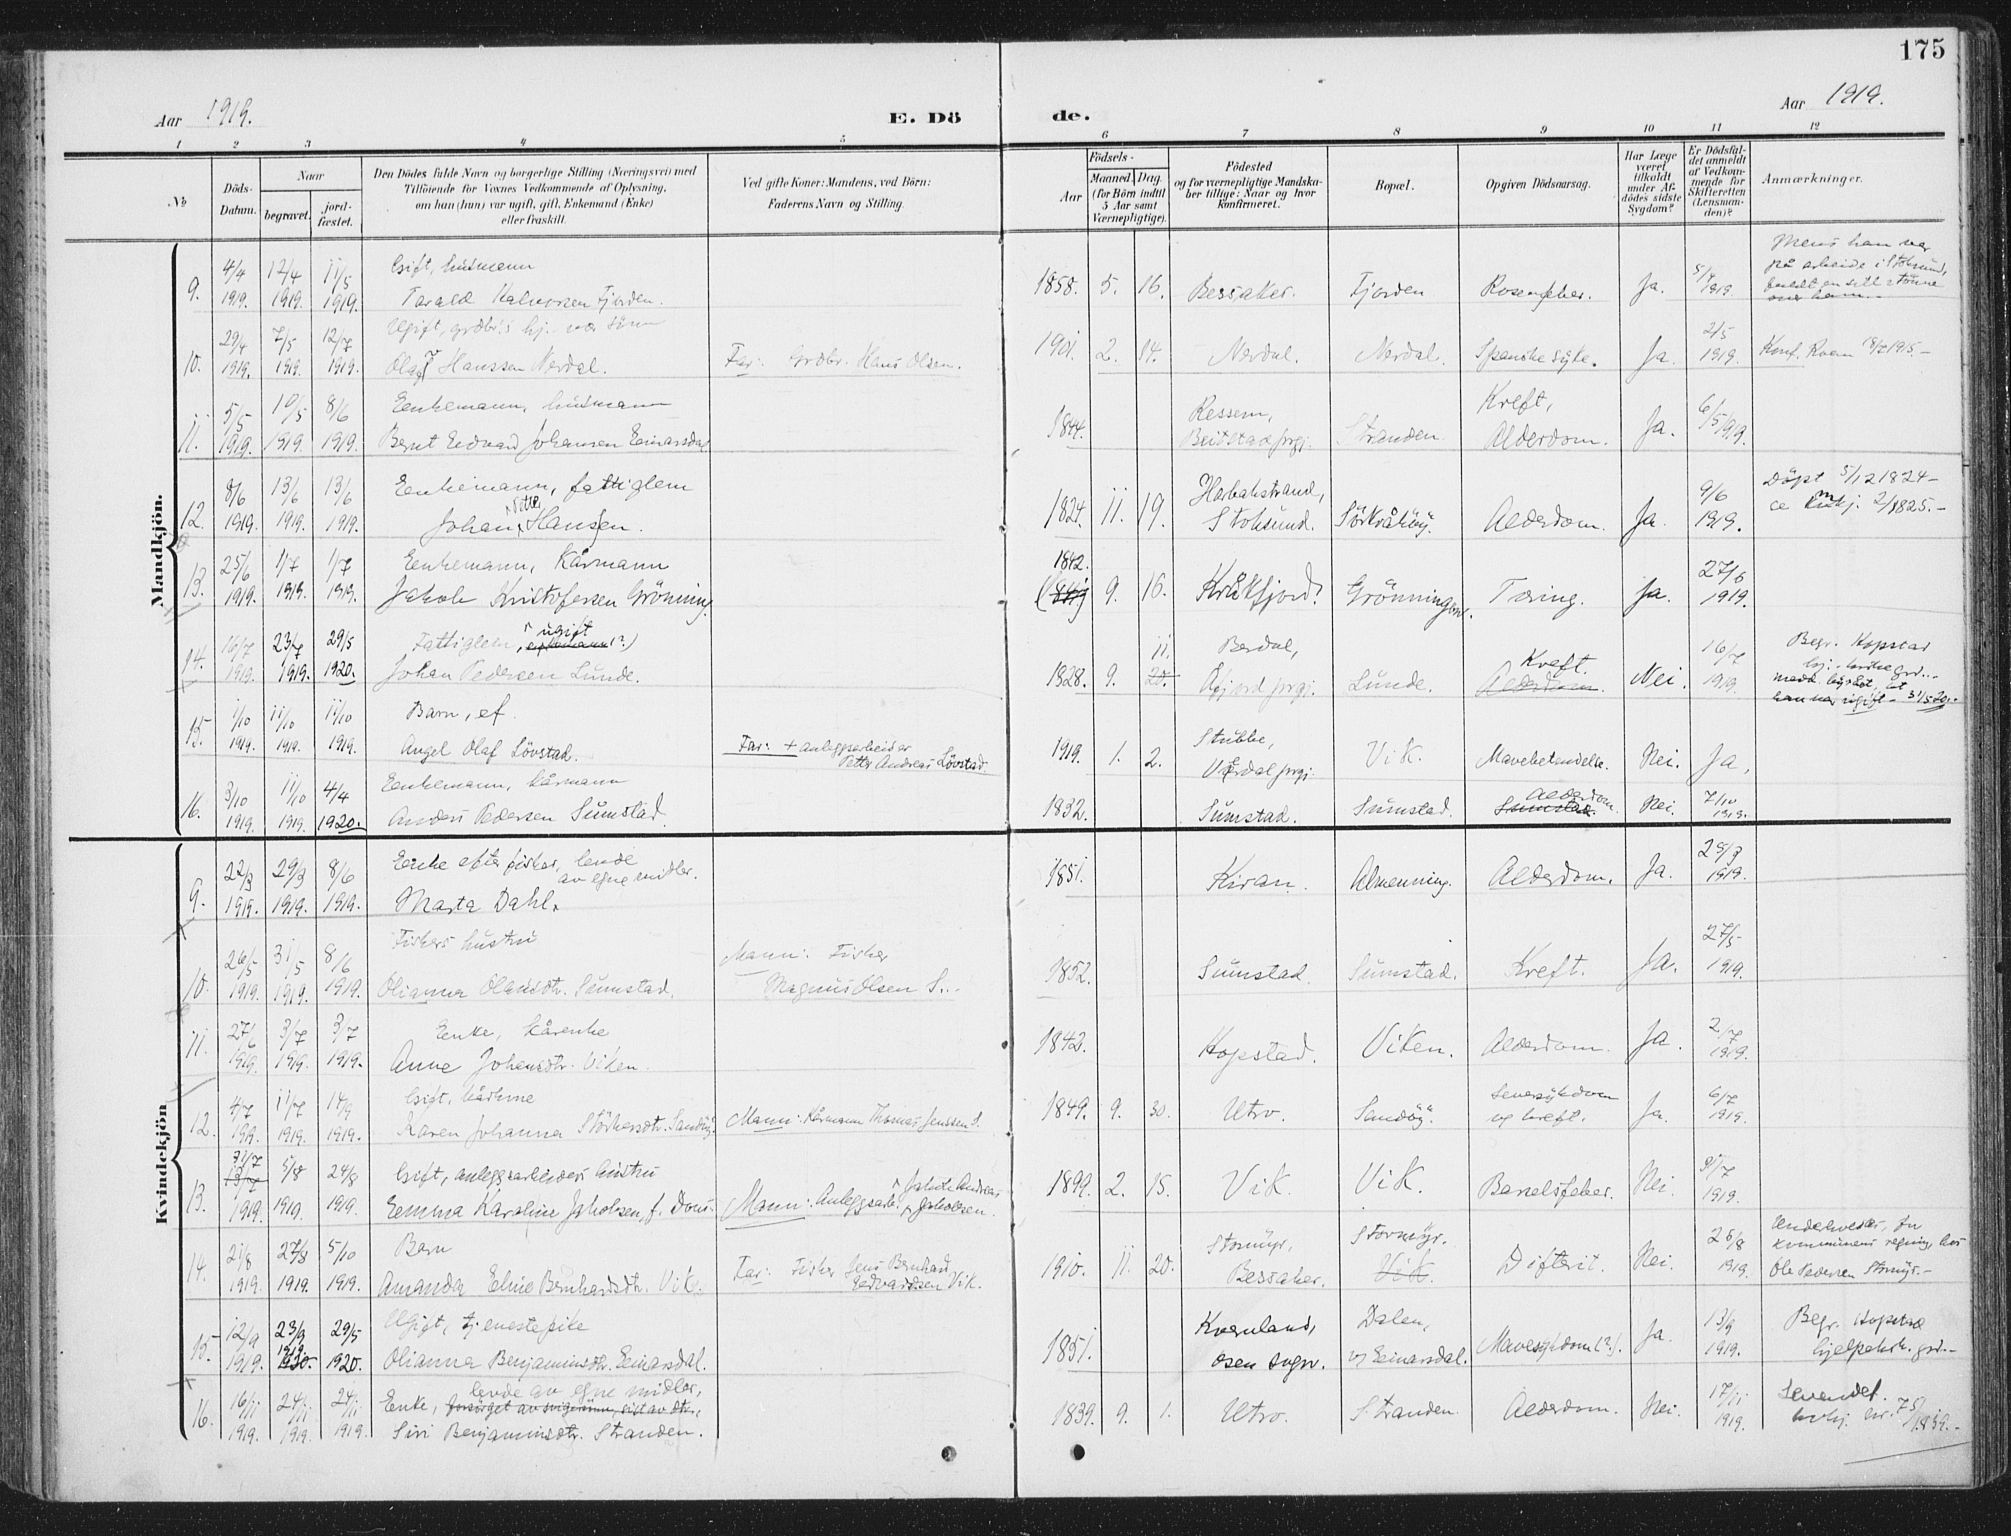 175
Aar 1919.
E. Dö
de.
Aar 1919.
1 2 3 4 5 6 7 8 9 10 11 12
No
Döds-
Datum.
Naar
begravet.
jord-
fæstet.
Den Dödes fulde Navn og borgerlige Stilling (Næringsvei) med
Tilföiende for Voxnes Vedkommende af Oplysning,
om han (hun) var ugift, gift, Enkemand (Enke)
eller fraskilt.
Ved gifte Koner: Mandens, ved Börn:
Faderens Navn og Stilling.
Födsels-
Aar
Maaned. Dag.
(for Börn indtil
5 Aar samt
Værnepligtige).
Födested
og for værnepligtige Mandska-
ber tillige: Naar og hvor
Konfirmeret.
Bopæl.
Opgiven Dödsaarsag.
Har Læge
været
tilkaldt
under Af-
dödes sidste
Sygdom?
Er Dödsfal-
det anmeldt
af Vedkom-
mende for
Skifteretten
(Lensman-
den)?
Anmærkninger.
Mandkjön.
9. 4/4 1919. 12/4 1919. 11/5 1919.
Gift, husmann
Tarald Halvorsen Fjorden.
1858. 5. 16. Bessaker. Fjorden Rosenfeber. Ja. 5/4 1919
Mens han var
på arbeide i Stoksund,
en sild tønne
over ham.
10. 29/4 1919. 7/5 1919. 12/7 1919.
Ugift, grdbr.s hj. vær. sönn
Olaf Hanssen Nerdal.
Far: Grdbr. Hans Olsen.
1901. 2. 14. Nerdal. Nerdal. Spanske syke. Ja. 2/5 1919.
Konf. Roan 1915.-
11. 5/5 1919. 10/5 1919. 8/6 1919.
Eenkemann, husmann
Bernt Edvard Johansen Einarsdal
1844. Ressem,
Beitstad prgj. Stranden. Kreft,
Alderdom. Ja. 6/5 1919.
12. 8/6 1919. 13/6 1919. 13/6 1919.
Eenkemann, fattiglem
Johan Petter Hansen.
1824. 11. 19. Harbakstrand,
Stoksund. Sörkråköy. Alderdom. Ja. 9/6 1919.
Döpt 5/12 1824 -
13. 25/6 1919. 1/7 1919. 1/7 1919.
Eenkemann, Kårmann
Jakob Kristofersen Grönning.
1842.
(1841) 9. 16. Kråkfjord. Grönningen. Tæring. Ja. 27/6 1919.
14. 16/7 1919. 23/7 1919. 29/5 1920.
Fattiglem, ugift enkemann(?)
Johan Pedersen Lunde.
1828. 9. 11. 20. Berdal,
Åfjord prgj. Lunde. Kreft.
Alderdom. Nei. 16/7 1919.
Begr. Hopstad
hj. kirkegrd.
han var ugift - 31/5 20.
15. 1/10 1919. 11/10 1919. 11/10 1919.
Barn, ef.
Angel Olaf Lövstad.
Far: + anleggsarbeider
Petter Andreas Lövstad.
1919. 1. 2. Stubbe,
Verdal prgj. Vik. Mavebetendelse. Nei. Ja.
16. 3/10 1919. 11/10 1919. 4/4 1920.
Eenkemann, kårmann
Anders Pedersen Sumstad.
1832. Sumstad. Sumstad. Alderdom
Sumstad. Nei. 7/10 1919.
Kvindekjön
9. 22/3 1919. 29/3 1919. 8/6 1919.
Eenke efter fisker, levde
av egne midler.
Marta Dahl.
1851. Kiran. Almenning. Alderdom. Ja. 25/3 1919.
10. 26/5 1919. 31/5 1919. 8/6 1919.
Fiskers hustru
Olianna Olausdtr. Sumstad.
Mann: Fisker
Magnus Olsen S.
1852. Sumstad. Sumstad. Kreft. Ja. 27/5 1919.
11. 27/6 1919. 3/7 1919. 3/7 1919.
Enke, kårenke
Anne Johansdtr. Viken.
1842. Hopstad. Viken. Alderdom. Ja. 2/7 1919.
12. 4/7 1919. 11/7 1919. 14/9 1919.
Gift, kårkone
Karen Johanna Störkersdtr. Sandöy.
Mann: Kårmann Thomas Jenssen S.
1849. 9. 30. Utro. Sandöy. Leversykdom
og kreft. Ja. 6/7 1919.
13. 31/7 13/7 1919. 5/8 1919. 24/8 1919.
Gift, anleggsarbeiders hustru
Eemma Karoline Jakobsen, f. Dons.
Mann: Anleggsarb. Jakob Andreas
Jakobsen.
1899. 2. 15. Vik. Vik. Barselsfeber. Nei. 31/7 1919.
14. 21/8 1919. 27/8 1919. 5/10 1919.
Barn
Amanda Eline Bernhardsdtr. Vik.
Far: Fisker Jens Bernhard
Eedvardsen Vik.
1910. 11. 20. Stormyr,
Bessaker. Stormyr.
Vik. Difterit. Nei. 26/8 1919.
kommunens regning, hos
Ole Pedersen Stormyr.-
15. 12/9 1919. 23/9 1919 1920. 29/5 1920.
Ugift, tjenestepike
Olianna Benjaminsdtr. Einarsdal.
1851. Kvernland,
Osen sogn. Dalen,
v/ Einarsdal. Mavesykdom(?). Ja. 13/9 1919.
Begr. Hopstad
hjelpekirk. grd.-
16. 16/11 1919. 24/11 1919. 24/11 1919.
levde av egne midler,
Enke, forsörget av svigersönn, sist av dtr.
Siri Benjaminsdtr. Stranden.
1839. 9. 1. Utro. Stranden. Alderdom. Nei. 17/11 1919.